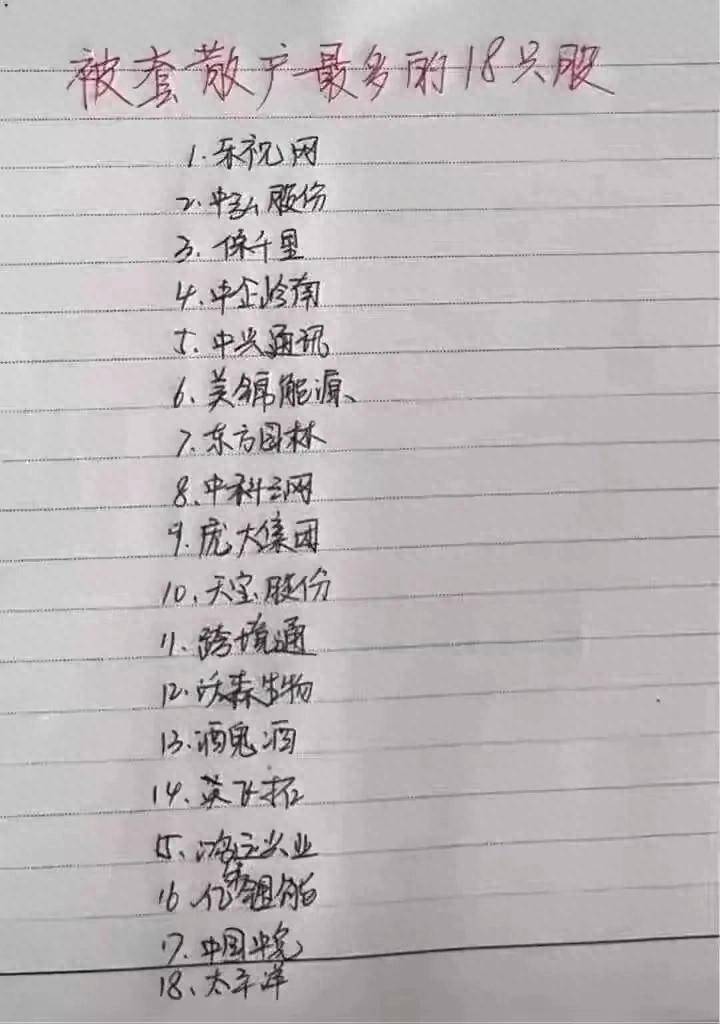 被套散户最多的18只股
1.乐视网
2.中弘股份
3.保千里
4.中企岭南
5.中兴通讯
6.美锦能源、
7.东方园林
8.中科云网
9.庞大集团
10.天宝股份
11.跨境通
12.沃森生物
13.酒鬼酒
14.英飞拓
15.
16.亿
17.中国中冕
18.太平洋